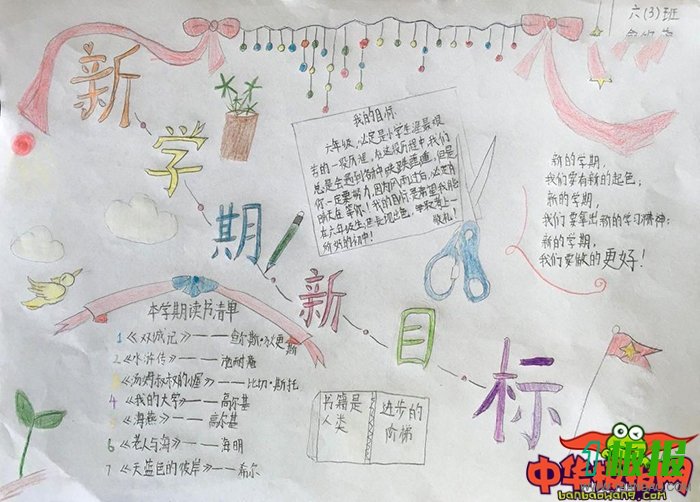 六(3)班
新学期新目标
我的目标
六年级,必定是小学生涯最艰
苦的一段历程,在这段历程中我们
总是会遇到
你一定要努力,因为风雨过后,必定有
我的目标是希望我能
在六年级
的初中!
新的学期,
我们要有新的起色;
新的学期,
我们要拿出新的学习精神;
新的学期,
我们要做的更好!
本学期读书清单
1《双城记》——查尔斯·狄更斯
2《水浒传》——施耐庵
3《汤姆叔叔的小屋》——比切·斯托
4《我的大学》——高尔基
5《海燕》——高尔基
6《老人与海》——海明
7《天蓝色的彼岸》——希尔
书籍是
人类
进步的
阶梯
中华板报网
banbaowang.com